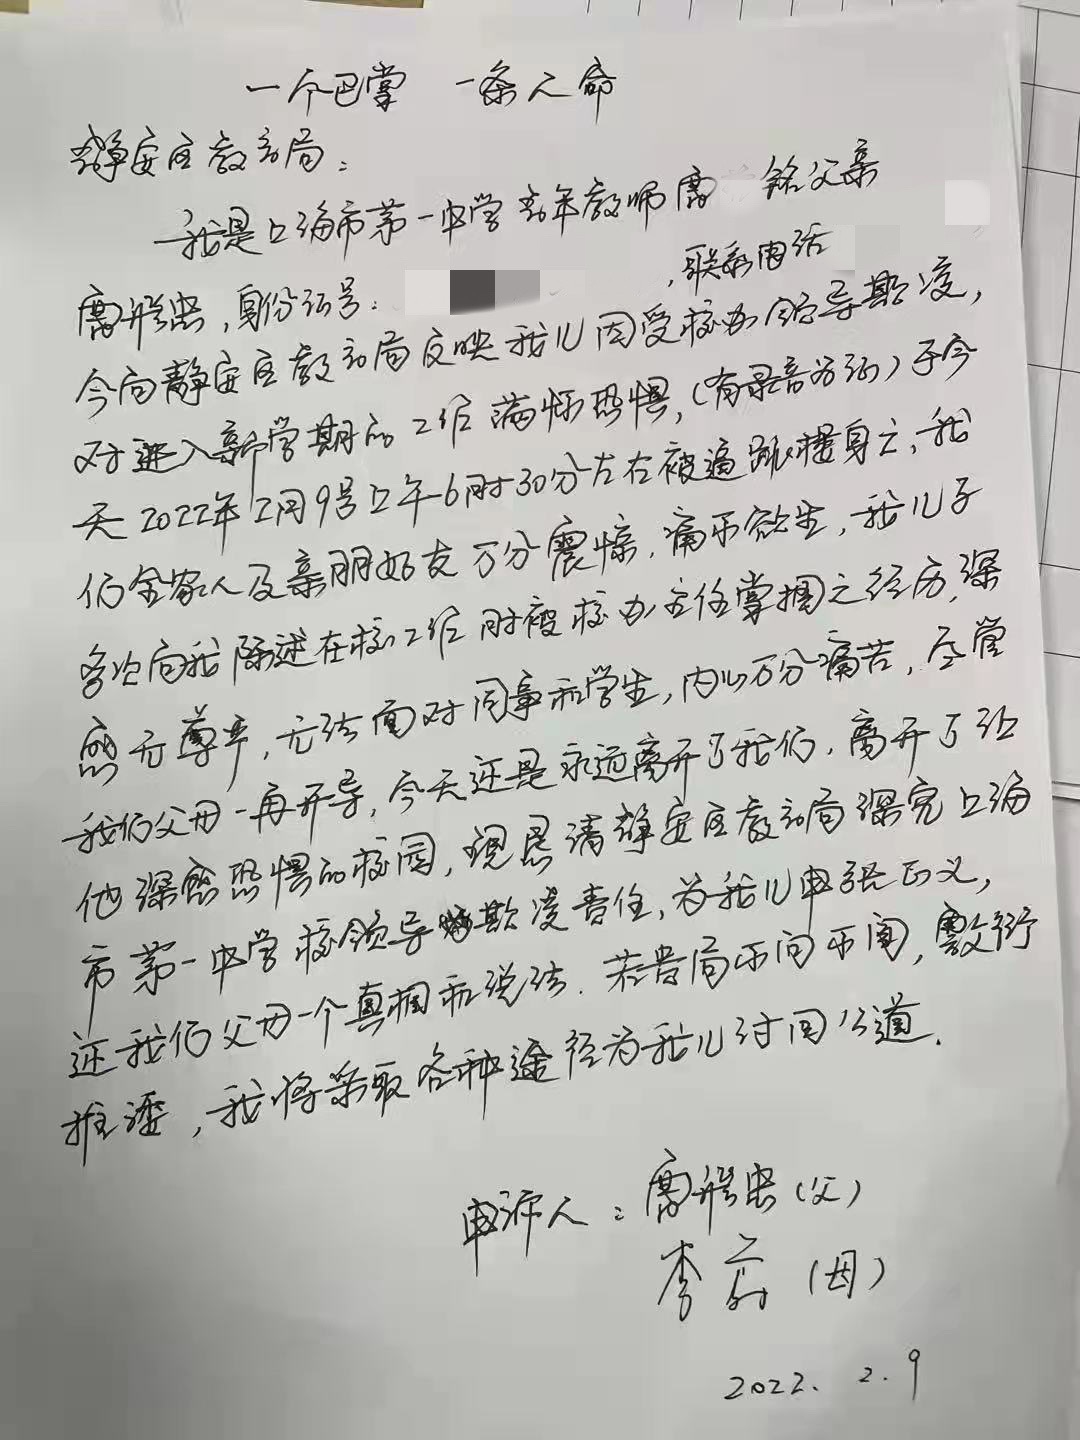 一个巴掌 一条人命
静安区教育局：
我是上海市第一中学青年教师 铭父亲
，身份证号： ，联系电话
今向静安区教育局反映我儿因受校办领导欺凌，
对进入新学期的工作满怀恐惧，（有录音为证）于今
天2022年2月9号上午6时30分左右被逼跳楼身亡，我
们全家人及亲朋好友万分震惊，痛不欲生，我儿子
多次向我陈述在校工作时被校办主任掌掴之经历，深
感无尊严，无法面对同事和学生，内心万分痛苦，尽管
我们父母一再开导，今天还是永远离开了我们，离开了让
他深感恐惧的校园，现恳请静安区教育局深究上海
市第一中学校领导欺凌责任，为我儿申张正义，
还我们父母一个真相和说法．若贵局不问不闻，敷衍
推诿，我将采取各种途径为我儿讨回公道．
申诉人：（父）
李 （母）
2022．2．9